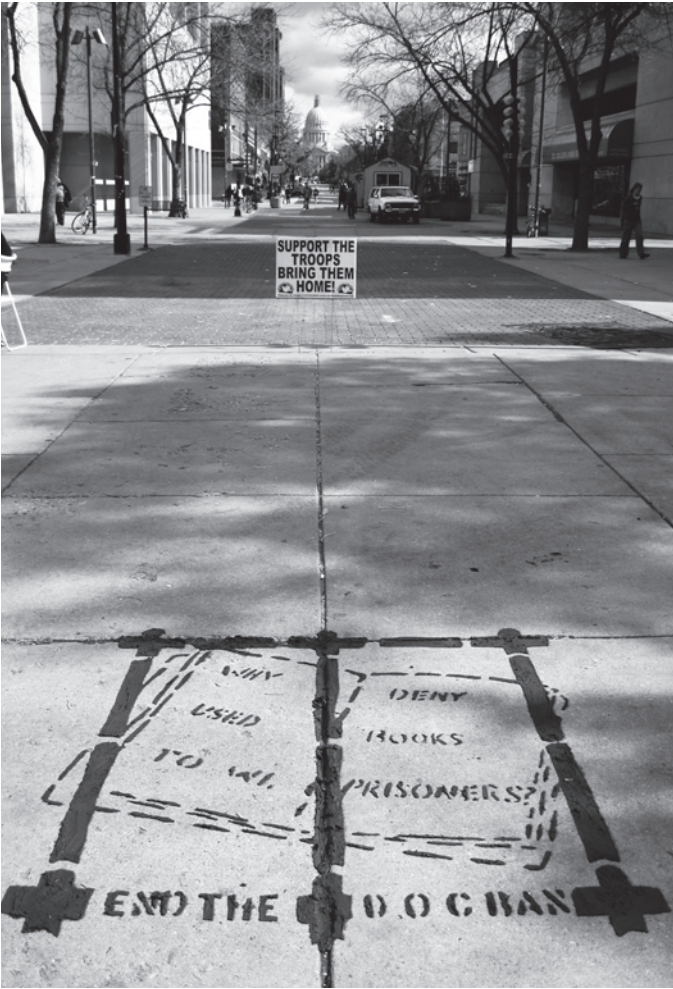 SUPPORT THE
TROOPS
BRING THEM
HOME!
WHY DENY
USED BOOKS
TO WI. PRISONERS?
END THE D.O.C BAN